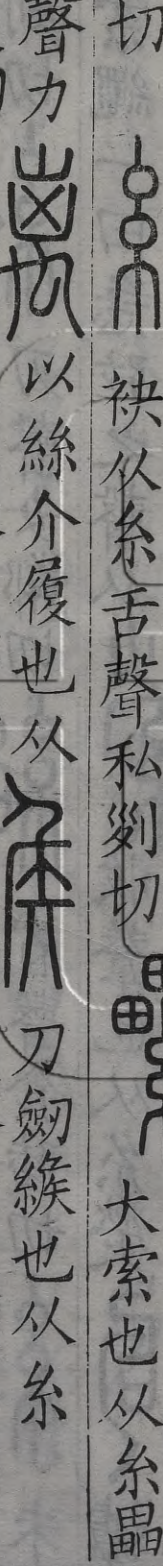 切 袂从糸舌聲私列切 大索也从糸畾
聲力 以絲介履也从 刀劒緱也从糸